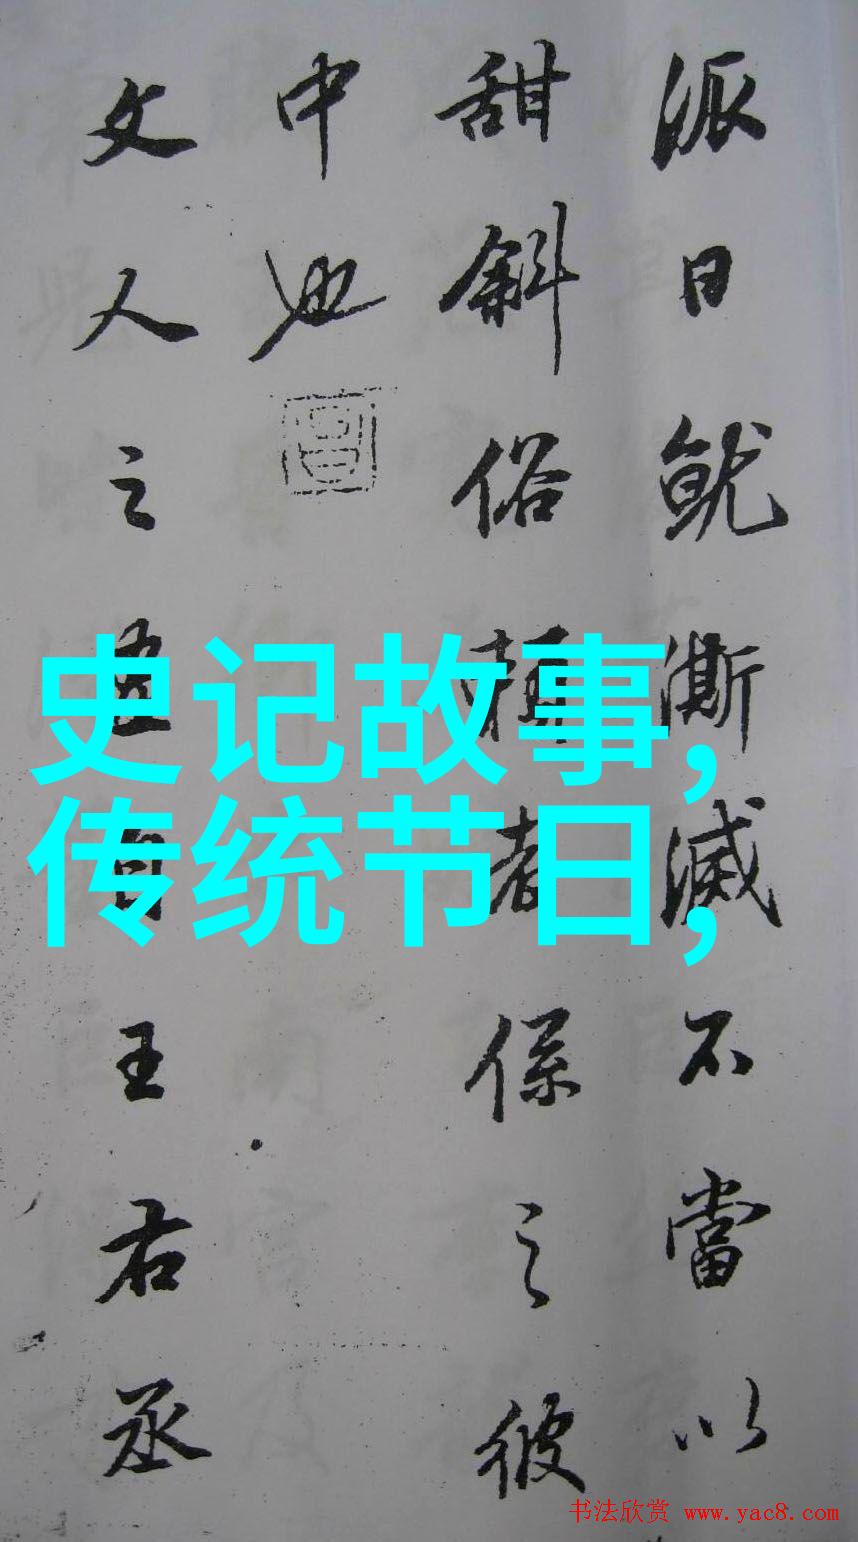 派日就澌滅不當以
甜斜俗賴者係之彼
中也
文人之畫自王右丞
史记故事,
传统节日,
书法欣赏 www.yac8.com